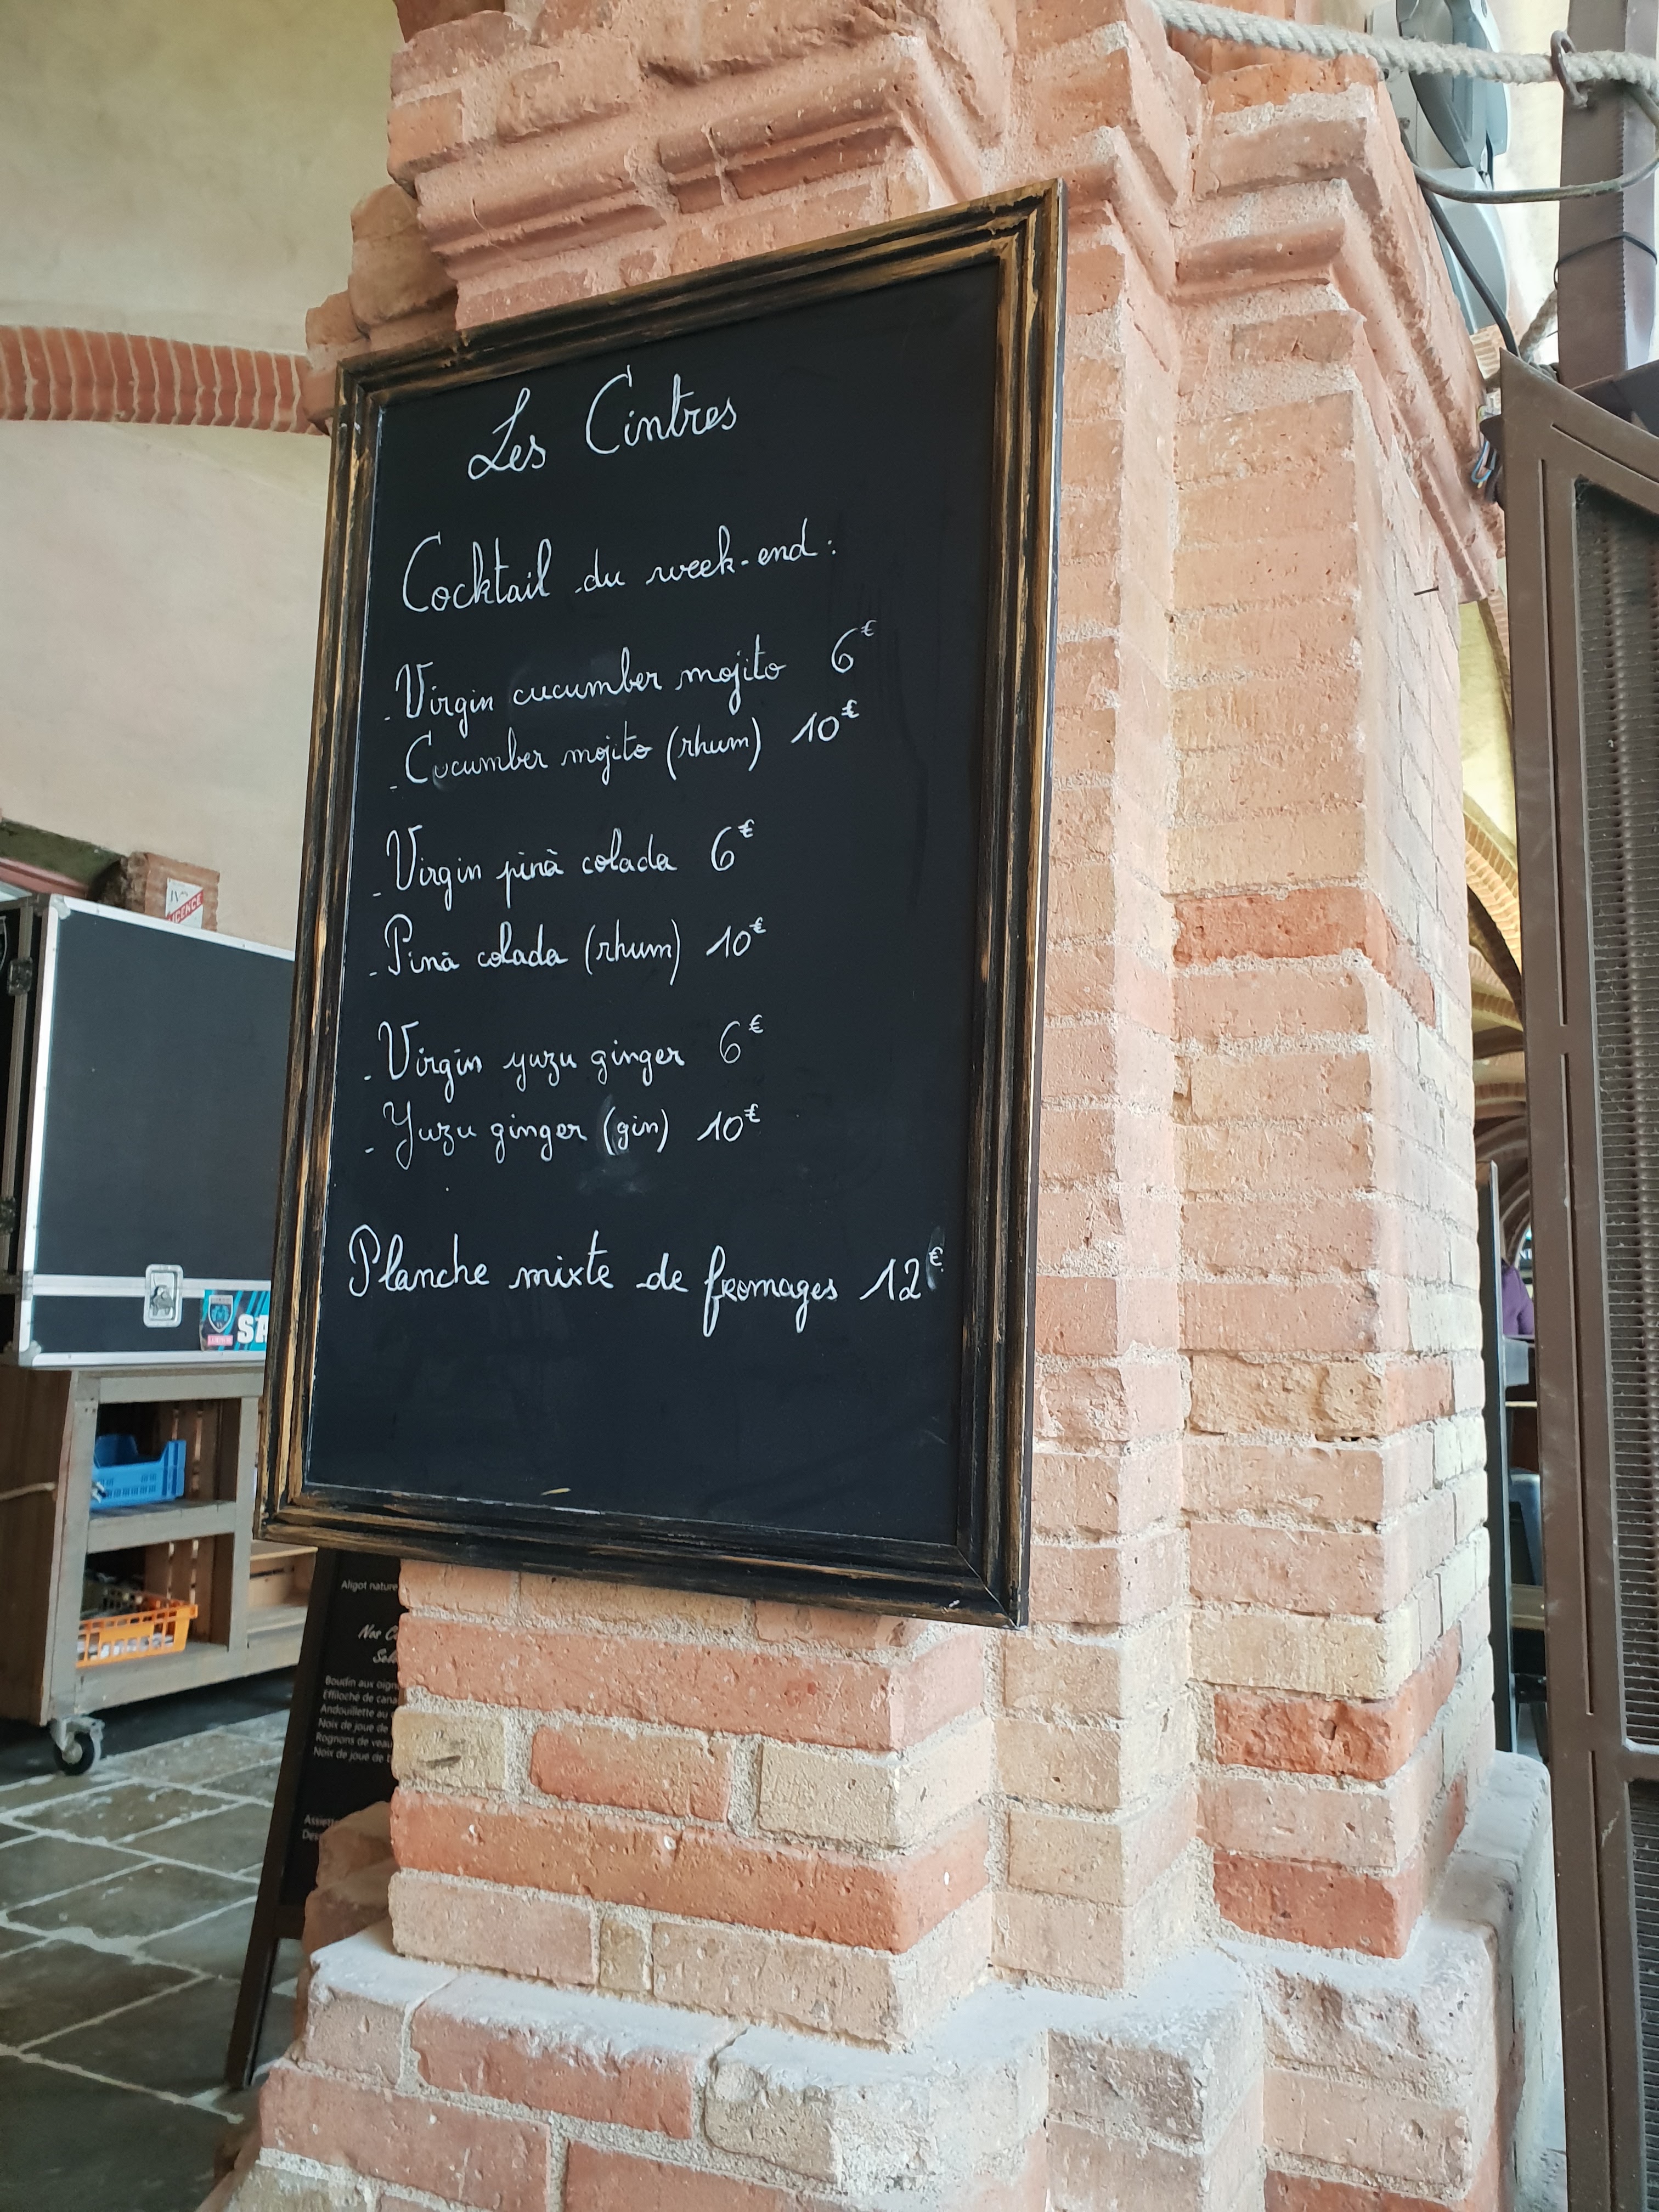 Les Cintres
Cocktail du week-end :
- Virgin cucumber mojito 6€
- Cucumber mojito (rhum) 10€
- Virgin pinà colada 6€
- Pinà colada (rhum) 10€
- Virgin yuzu ginger 6€
- Yuzu ginger (gin) 10€
Planche mixte de fromages 12€
LICENCE
SA
Aligot nature
Nos
Boudin aux
Effiloché de
Andouillette au
Noix de joue de
Rognons de veau
Noix de joue de